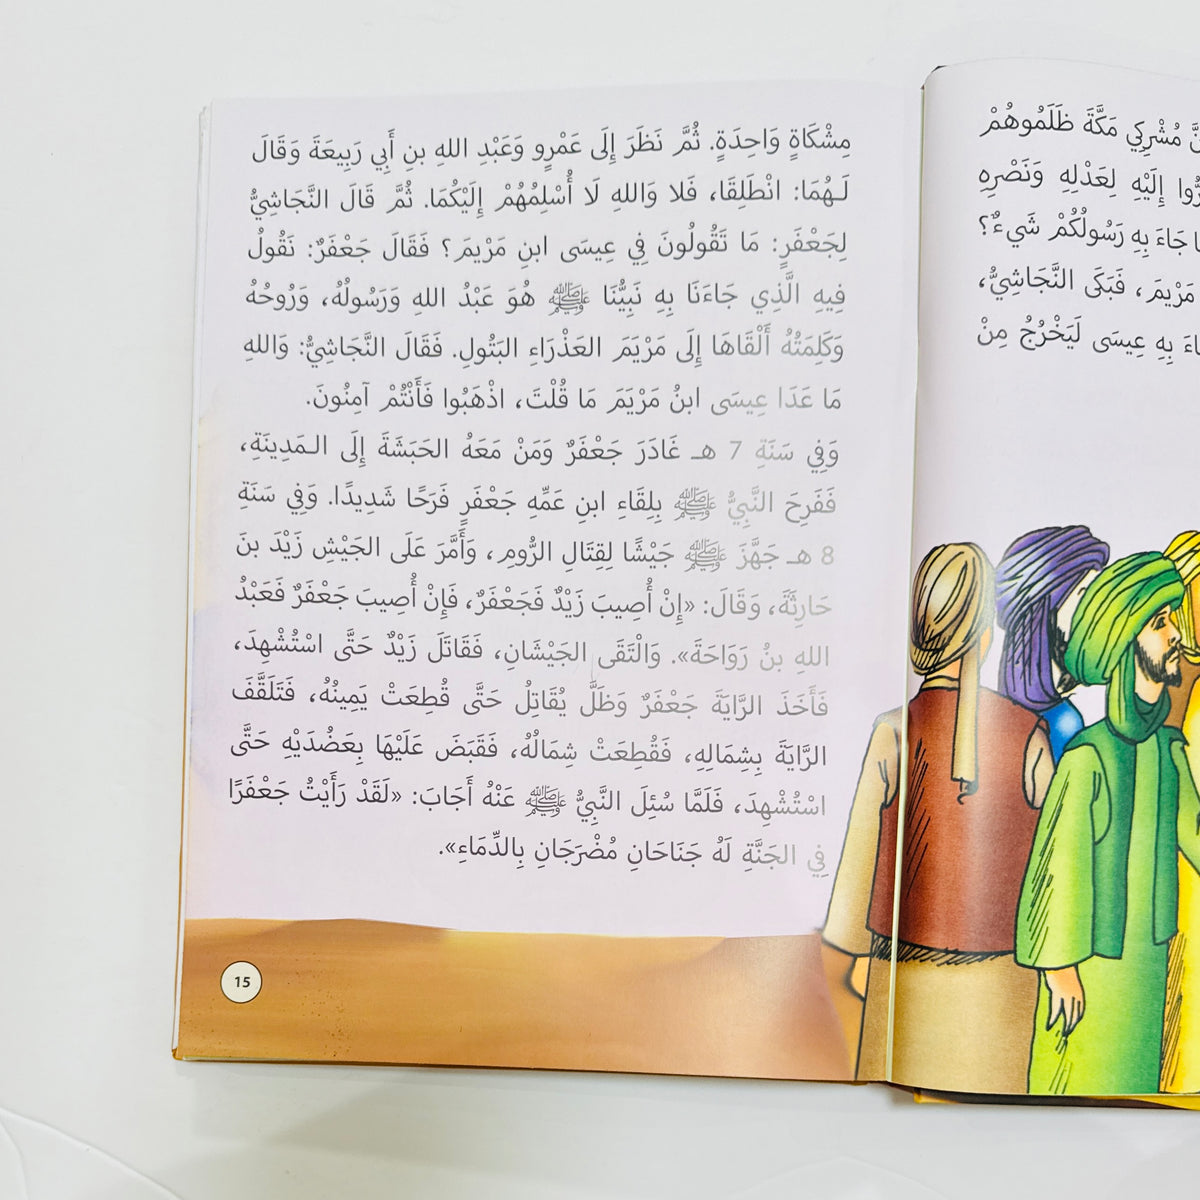 نَّ مُشْرِكِي مَكَّةَ ظَلَمُوهُمْ
إِلَيْهِ لِعَدْلِهِ وَنَصْرِهِ
جَاءَ بِهِ رَسُولُكُمْ شَيءٌ؟
مَرْيَمَ، فَبَكَى النَّجَاشِيُّ،
بِهِ عِيسَى لَيَخْرُجُ مِنْ
مِشْكَاةٍ وَاحِدَةٍ. ثُمَّ نَظَرَ إِلَى عَمْرٍو وَعَبْدِ اللهِ بنِ أَبِي رَبِيعَةَ وَقَالَ
لَـهُمَا: انْطَلِقَا، فَلا وَاللهِ لَا أُسْلِمُهُمْ إِلَيْكُمَا. ثُمَّ قَالَ النَّجَاشِيُّ
لِجَعْفَرٍ: مَا تَقُولُونَ فِي عِيسَى ابنِ مَرْيَمَ؟ فَقَالَ جَعْفَرٌ: نَقُولُ
فِيهِ الَّذِي جَاءَنَا بِهِ نَبِيُّنَا ﷺ هُوَ عَبْدُ اللهِ وَرَسُولُهُ، وَرُوحُهُ
وَكَلِمَتُهُ أَلْقَاهَا إِلَى مَرْيَمَ العَذْرَاءِ البَتُولِ. فَقَالَ النَّجَاشِيُّ: وَاللهِ
مَا عَدَا عِيسَى ابنُ مَرْيَمَ مَا قُلْتَ، اذْهَبُوا فَأَنْتُمْ آمِنُونَ.
وَفِي سَنَةِ 7 هـ غَادَرَ جَعْفَرٌ وَمَنْ مَعَهُ الحَبَشَةَ إِلَى الـمَدِينَةِ،
فَفَرِحَ النَّبِيُّ ﷺ بِلِقَاءِ ابنِ عَمِّهِ جَعْفَرٍ فَرَحًا شَدِيدًا. وَفِي سَنَةِ
8 هـ جَهَّزَ ﷺ جَيْشًا لِقِتَالِ الرُّومِ، وَأَمَّرَ عَلَى الجَيْشِ زَيْدَ بنَ
حَارِثَةَ، وَقَالَ: «إِنْ أُصِيبَ زَيْدٌ فَجَعْفَرٌ، فَإِنْ أُصِيبَ جَعْفَرٌ فَعَبْدُ
اللهِ بنُ رَوَاحَةَ». وَالْتَقَى الجَيْشَانِ، فَقَاتَلَ زَيْدٌ حَتَّى اسْتُشْهِدَ،
فَأَخَذَ الرَّايَةَ جَعْفَرٌ وَظَلَّ يُقَاتِلُ حَتَّى قُطِعَتْ يَمِينُهُ، فَتَلَقَّفَ
الرَّايَةَ بِشِمَالِهِ، فَقُطِعَتْ شِمَالُهُ، فَقَبَضَ عَلَيْهَا بِعَضُدَيْهِ حَتَّى
اسْتُشْهِدَ، فَلَمَّا سُئِلَ النَّبِيُّ ﷺ عَنْهُ أَجَابَ: «لَقَدْ رَأَيْتُ جَعْفَرًا
فِي الجَنَّةِ لَهُ جَنَاحَانِ مُضْرَجَانِ بِالدِّمَاءِ».
15